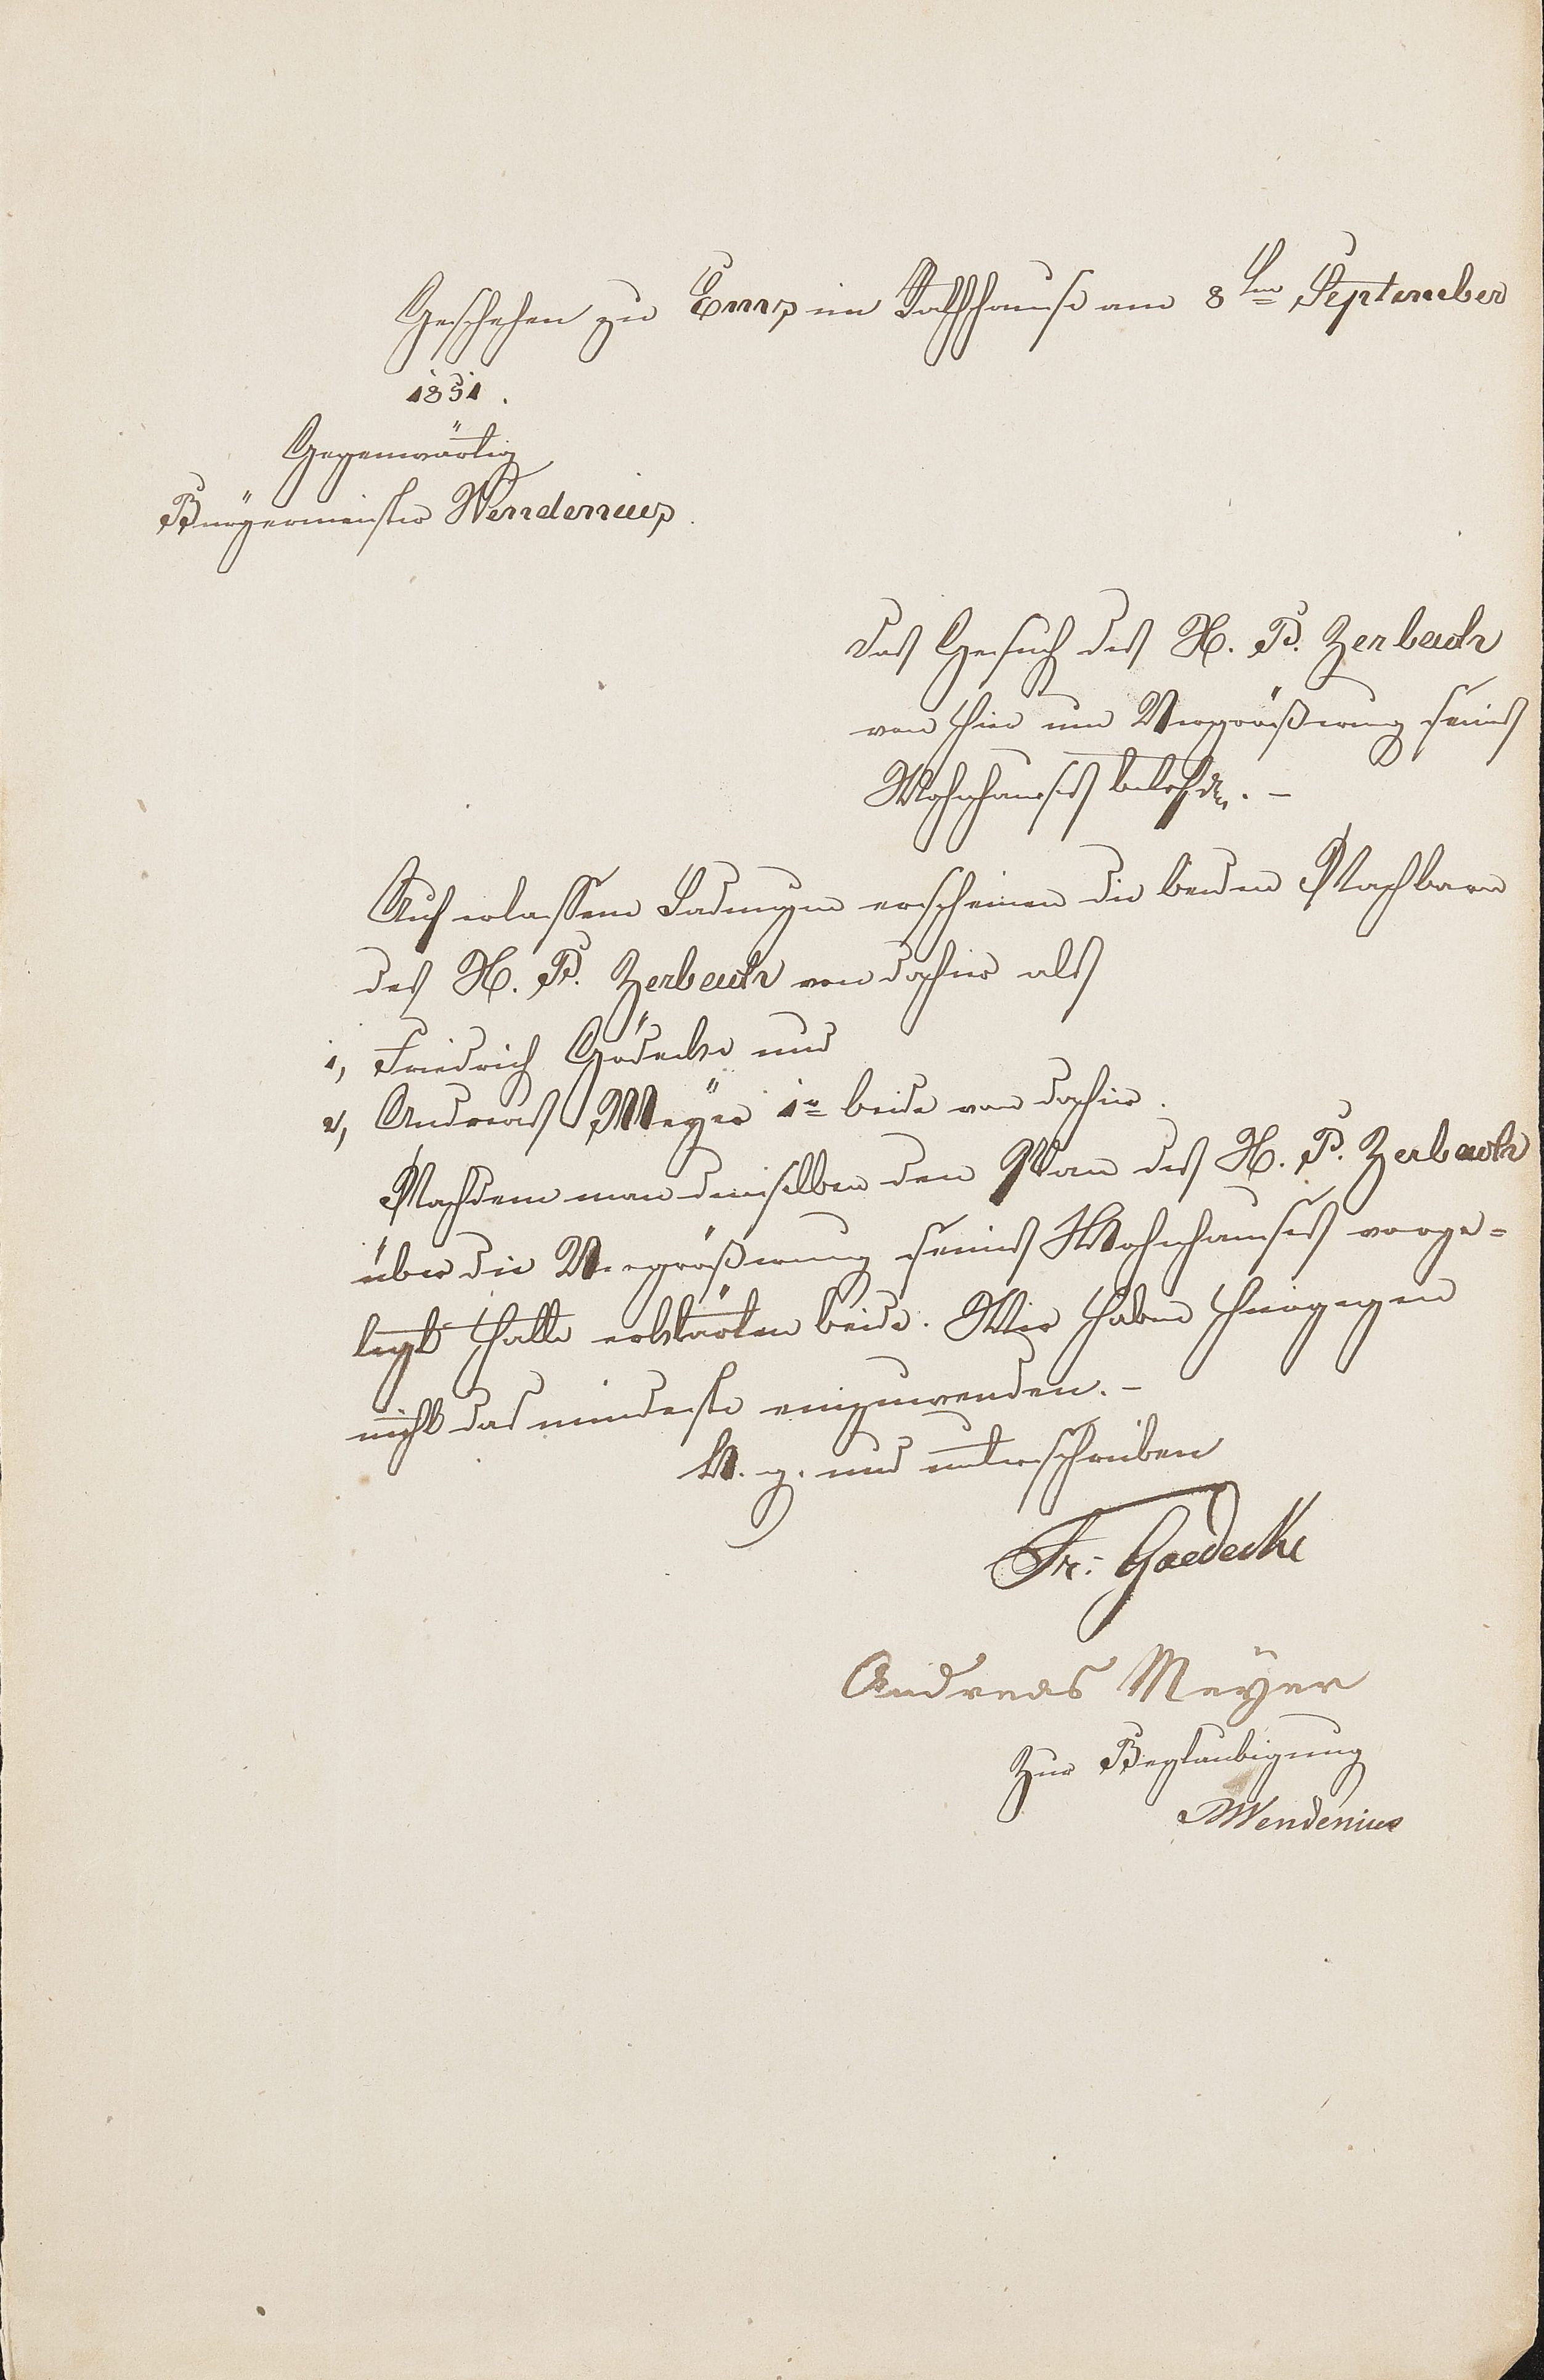 Geschehen zu Ems im Rathhause am 8ten September
1851.
Gegenwärtig
Bürgermeister Wendenius.
das Gesuch des H. P. Zerbach
von hier um Vergrößerung seines
Wohnhauses betrfd.–
Auf erlassene Ladungen erscheinen die beiden Nachbarn
des H. P. Zerbach von dahier als
1, Friedrich Gödecke und
2, Andreas Meÿer 1r beide von dahier.
Nachdem man denselben den Plan des H. P. Zerbach
über die Vergrößerung seines Wohnhauses vorge=
legt hatte erklärten beide. Wir haben hiergegen
nicht das mindeste einzuwenden.–
V. g. und unterschrieben
Fr: Goedecke
Andreas Meÿer
Zur Beglaubigung
Wendenius